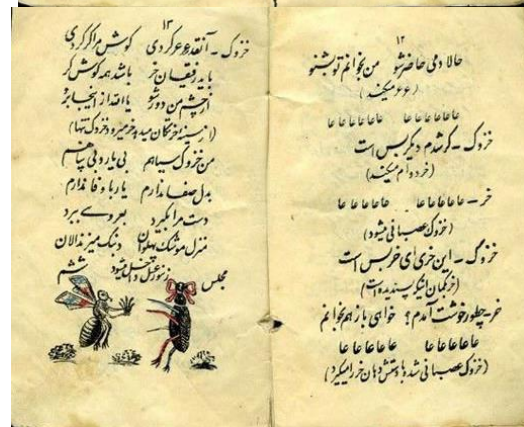 ۱۲
حالا دمی حاضر شو من بخوانم تو بشنو
(عرعر میکند)
عاعاعاعاعاعا عاعاعاعاعاعا
خزوک – کر شدم دیگر بس است
(خر دوام میکند)
خر – عاعاعاعاعاعا عاعاعاعاعاعا
(خزوک عصبانی میشود)
خزوک – این خری ای خر بس است
(خر گمان اینکه پسندیده است)
خر – چطور خوشت آمدم؟ خواهی باز هم بخوانم
عاعاعاعاعاعا عاعاعاعاعاعا
(خزوک عصبانی شده با دستش دهان خر را میگیرد)
۱۳
خزوک – آنقدر عرعر کردی گوش مرا کر کردی
باید رفیقان خر باشد همه گوش کر
از چشم من دور شو یا افتد از اینجا بز
من خزوک سیاهم بی یار و بی پناهم
بدل صفا ندارم یار با وفا ندارم
دست مرا بگیرد بعروسی ببرد
منزل موشک پهلوان دنبک میزند دالان
مجلس ششم
زنبور عسل داخل میشود